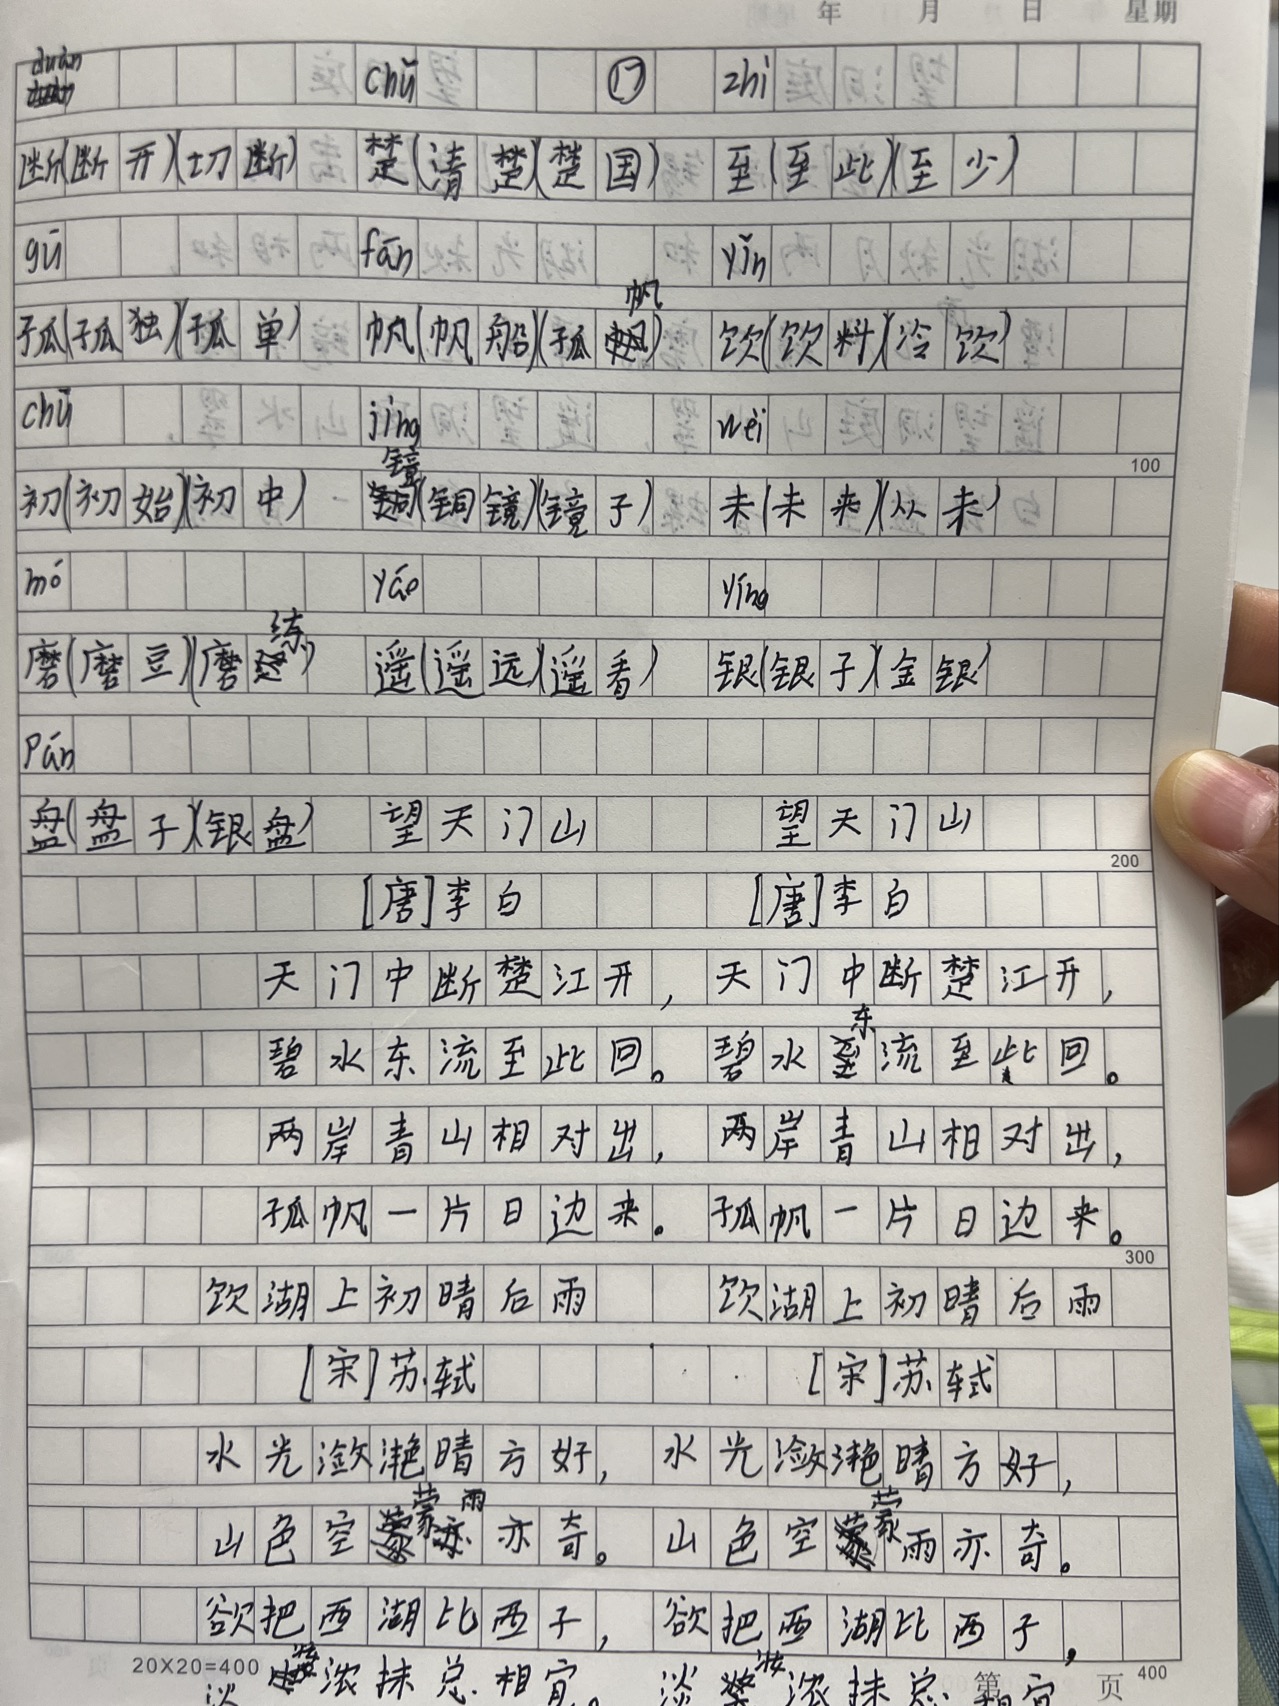 年 月 日 星期
duàn chǔ ⑰ zhì
断(断开)(切断) 楚(清楚)(楚国) 至(至此)(至少)
gū fān yǐn
孤(孤独)(孤单) 帆(帆船)(孤帆) 饮(饮料)(冷饮)
chū jìng wèi
100
初(初始)(初中) 镜(铜镜)(镜子) 未(未来)(从未)
mó yáo yíng
磨(磨豆)(磨练) 遥(遥远)(遥看) 银(银子)(金银)
pán
盘(盘子)(银盘) 望天门山 望天门山
200
[唐]李白 [唐]李白
天门中断楚江开, 天门中断楚江开,
碧水东流至此回。 碧水东流至此回。
两岸青山相对出, 两岸青山相对出,
孤帆一片日边来。 孤帆一片日边来。
300
饮湖上初晴后雨 饮湖上初晴后雨
[宋]苏轼 [宋]苏轼
水光潋滟晴方好, 水光潋滟晴方好,
山色空蒙雨亦奇。 山色空蒙雨亦奇。
欲把西湖比西子, 欲把西湖比西子,
20X20=400 第 页 400
淡妆浓抹总相宜。 淡妆浓抹总相宜